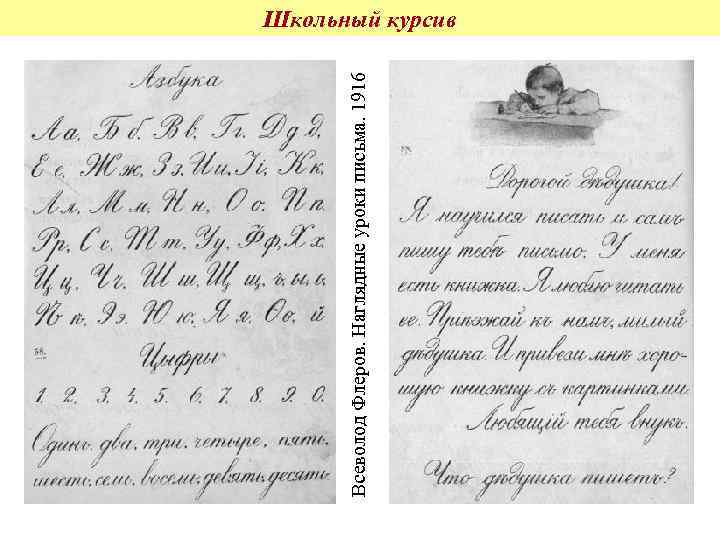 Школьный курсив
Азбука
А а. Б б. В в. Г г. Д д д.
Е е. Ж ж. З з. И и. І і. К к.
Л л. М м. Н н. О о. П п.
Р р. С с. Т т. У у. Ф ф. Х х.
Ц ц. Ч ч. Ш ш. Щ щ. ъ. ы. ь.
Ѣ ѣ. Э э. Ю ю. Я я. Ѳ ѳ. й
58.
Цыфры
1. 2. 3. 4. 5. 6. 7. 8. 9. 0.
Одинъ, два, три, четыре, пять,
шесть, семь, восемь, девять, десять.
Всеволод Флеров. Наглядные уроки письма. 1916
Дорогой дѣдушка!
Я научился писать и самъ
пишу тебѣ письмо. У меня
есть книжка. Я люблю читать
ее. Пріѣзжай къ намъ, милый
дѣдушка. И привези мнѣ хоро-
шую книжку съ картинками.
Любящій тебя внукъ.
Что дѣдушка пишетъ?